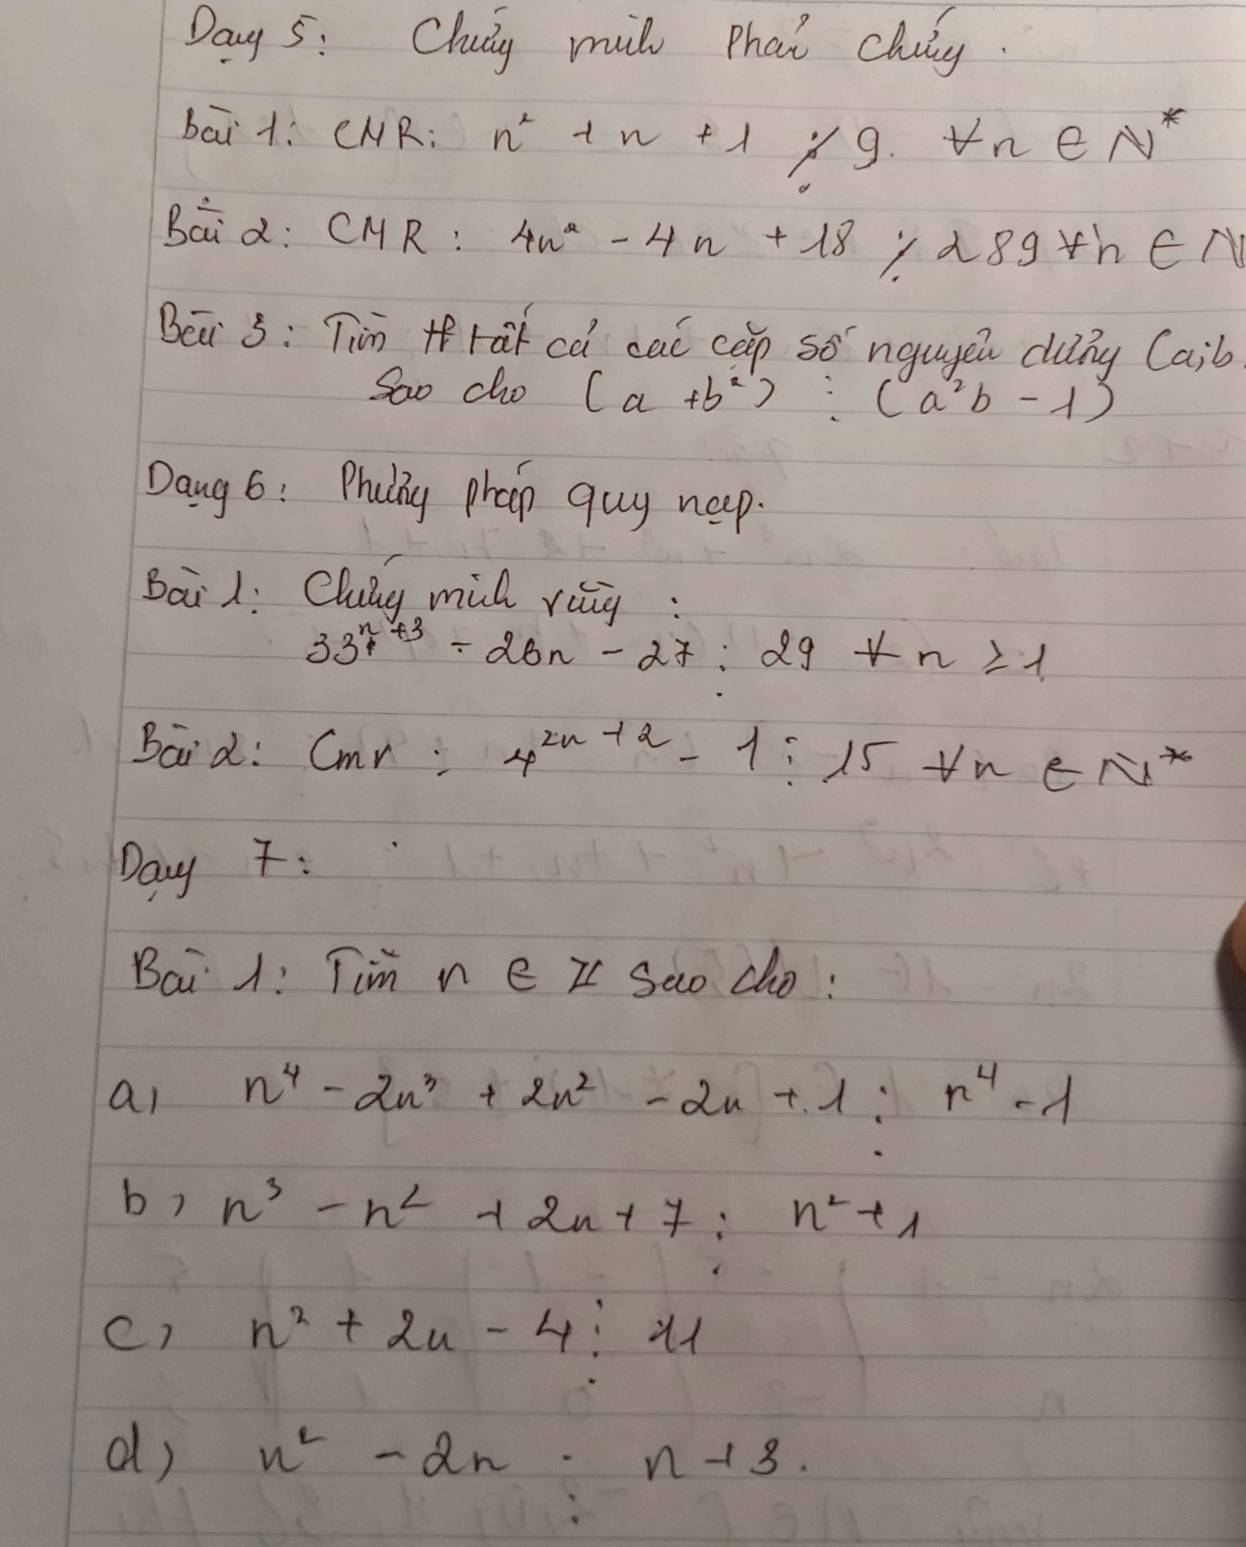 Dạng 5: Chứng minh phản chứng.
Bài 1: CMR: n² + n + 1 ⋮̸ 9. ∀n ∈ N*
Bài 2: CMR: 4n² - 4n + 18 ⋮̸ 289 ∀n ∈ N
Bài 3: Tìm tất cả các cặp số nguyên dương (a;b
Sao cho (a + b²) ⋮ (a²b - 1)
Dạng 6: Phương pháp quy nạp.
Bài 1: Chứng minh rằng:
33ⁿ⁺³ - 26n - 27 ⋮ 29 ∀n ≥ 1
Bài 2: Cmr: 4²ⁿ⁺² - 1 ⋮ 15 ∀n ∈ N*
Dạng 7:
Bài 1: Tìm n ∈ Z Sao cho:
a, n⁴ - 2n³ + 2n² - 2n + 1 ⋮ n⁴ - 1
b, n³ - n² + 2n + 7 ⋮ n² + 1
c, n² + 2n - 4 ⋮ 11
d) n² - 2n ⋮ n + 3.